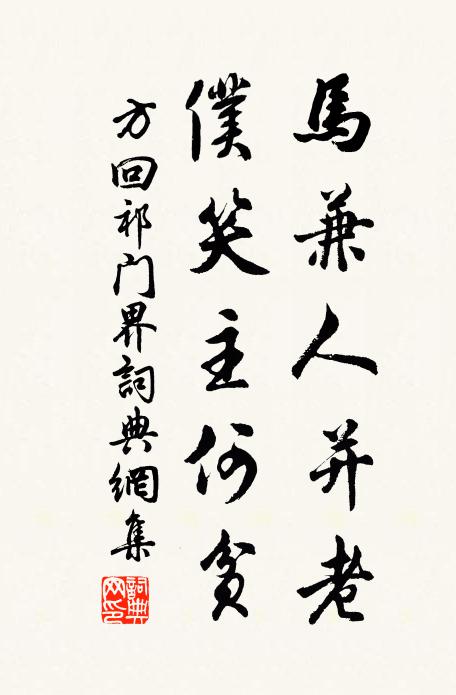 馬兼人并老
僕笑主何貧
方回祁門界詞典網集
詞典
网印